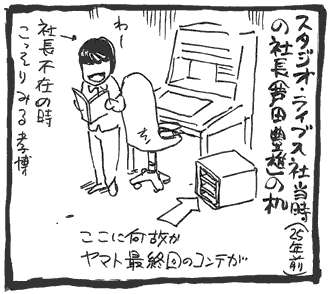 スタジオ・ライブス社当時(25年前)
の社長芦田豊雄の机
わー
社長不在の時
こっそりみる孝博
ここに何故か
ヤマト最終回のコンテが